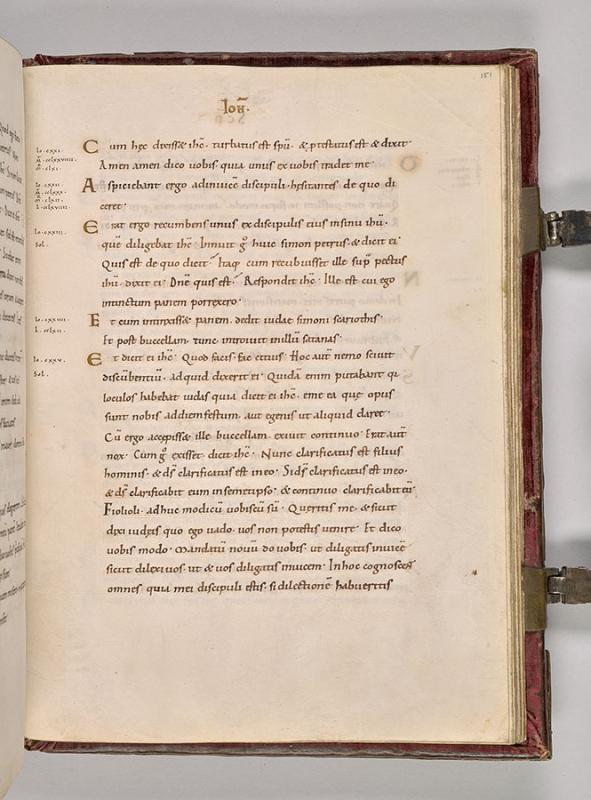 181
IOH̄.
Cum hęc dixissæ ihc̄. turbatus est spū. & p̱testatus est & dixit.
Amen amen dico uobis quia unus ex uobis tradet me.
Aspiciebant ergo adinuicē discipuli. hesitantes de quo di
ceret.
Erat ergo recumbens unus ex discipulis eius insinu ihū.
quē diligebat ihc̄. Innuit g̊ huic simon petrus. & dicit ei.
Quis est de quo dicit? Itaq; cum recubuisset ille sup̄ pectus
ihū. dixit ei. Dn̄e quis est? Respondit ihc̄. Ille est cui ego
intinctum panem porrexero.
Et cum intinxissæ panem. dedit iudae simoni scariothis.
Et post buccellam. tunc introiuit inillū satanas.
Et dicit ei ihc̄. Quod facis. fac citius. Hoc aut̄ nemo sciuit
discūbentiū. ad quid dixerit ei. Quidā enim putabant q̇
loculos habebat iudas quia dicit ei ihc̄. eme ea que opus
sunt nobis addiemfestum. aut egenis ut aliquid daret.
Cū ergo accepissæ ille buccellam. exiuit continuo. Erat aut̄
nox. Cum g̊ exisset. dicit ihc̄. Nunc clarificatus est filius
hominis. & ds̄ clarificatus est ineo. Si ds̄ clarificatus est ineo.
& ds̄ clarificabit eum insemetipso. & continuo clarificabit eū.
Fiolioli. adhuc modicū uobiscū sū. Queritis me. & sicut
dixi iudęis quo ego uado. uos non potestis uenire. Et dico
uobis modo. Mandatū nouū do uobis. ut diligatis inuicē
sicut dilexi uos. ut & uos diligatis inuicem. Inhoc cognoscēt
omnes. quia mei discipuli estis. si dilectionē habueritis